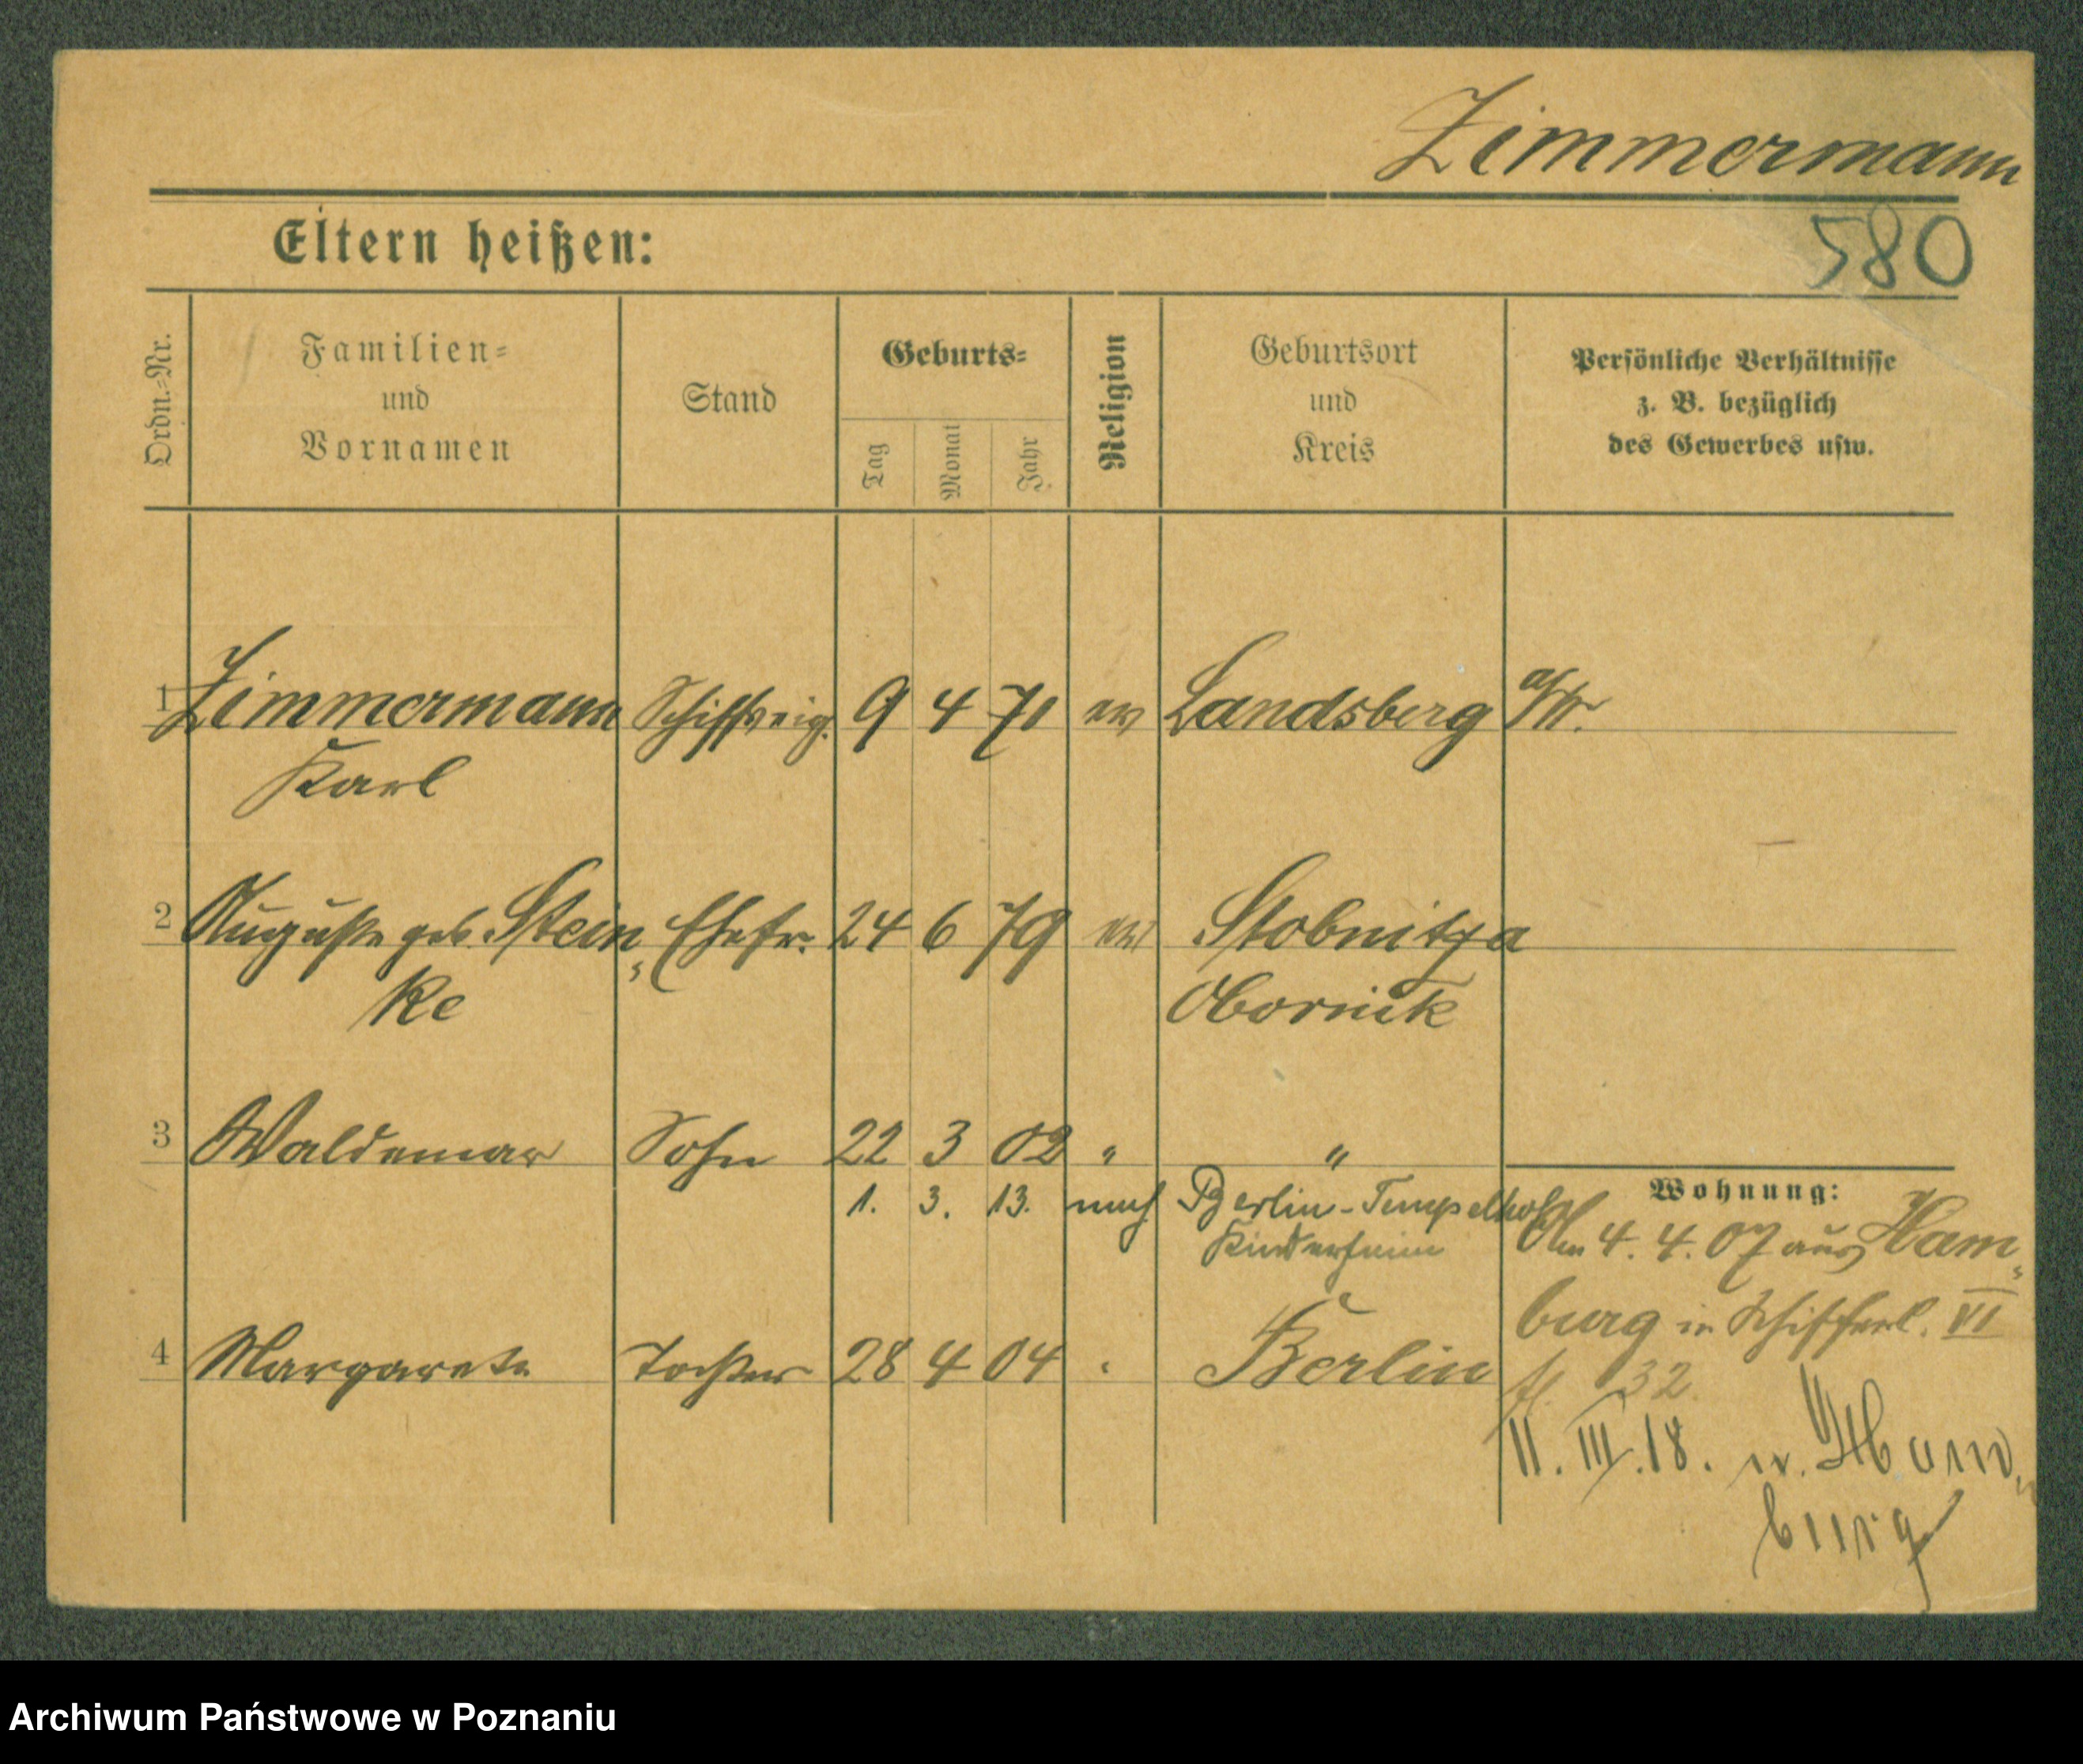 Zimmermann
Eltern heißen:
580
Ordn.-Nr.
Familien-
und
Vornamen
Stand
Geburts-
Tag
Monat
Jahr
Religion
Geburtsort
und
Kreis
Persönliche Verhältnisse
z. B. bezüglich
des Gewerbes usw.
1 Zimmermann Schiffseig. 9 4 71 ev Landsberg a/W.
Karl
2 Auguste geb. Stein- Ehefr. 24 6 79 ev Stobnitza
ke Obornik
3 Waldemar Sohn 22 3 02 " "
1. 3. 13. nach Berlin-Tempelhof
Kinderheim
4 Margarete Tochter 28 4 04 " Berlin
Wohnung:
Am 4. 4. 07 aus Ham-
burg in Schifferl. VI
fl. 32
11. III. 18. n. Ham-
burg
Archiwum Państwowe w Poznaniu